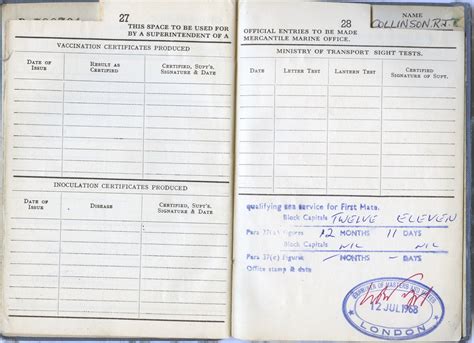 27
THIS SPACE TO BE USED FOR
BY A SUPERINTENDENT OF A
VACCINATION CERTIFICATES PRODUCED
DATE OF ISSUE
RESULT AS CERTIFIED
CERTIFIED, SUPT'S. SIGNATURE & DATE
INOCULATION CERTIFICATES PRODUCED
DATE OF ISSUE
DISEASE
CERTIFIED, SUPT'S SIGNATURE & DATE
28
NAME
COLLINSON. R.J.
OFFICIAL ENTRIES TO BE MADE
MERCANTILE MARINE OFFICE.
MINISTRY OF TRANSPORT SIGHT TESTS.
DATE
LETTER TEST
LANTERN TEST
CERTIFIED SIGNATURE OF SUPT.
qualifying sea service for First Mate.
Block Capitals TWELVE ELEVEN
Para 37(b) figures 12 MONTHS 11 DAYS
Block Capitals NIL NIL
Para 37(c) figures - MONTHS - DAYS
Office stamp & date
EXAMINERS OF MASTERS AND MATES
12 JUL 1968
LONDON